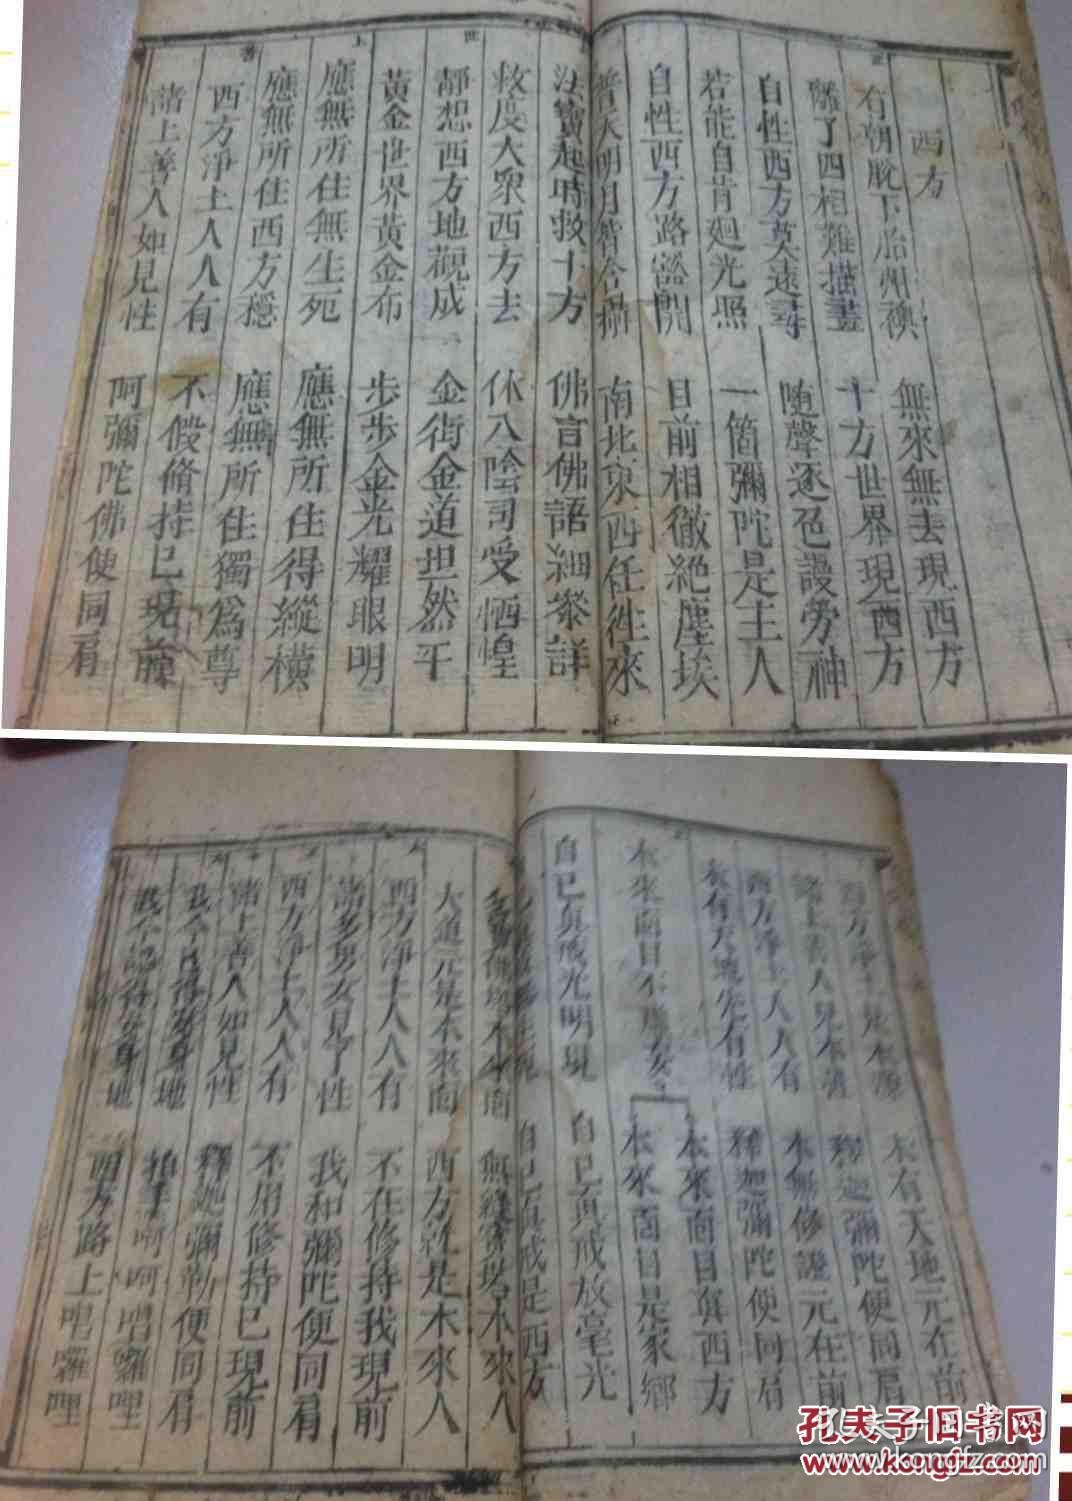 西方
有朝脫下胎州襖 無來無去現西方
離了四相難描畫 十方世界現西方
自性西方莫遠尋 随聲逐色謾勞神
若能自肯廻光照 一箇彌陀是主人
自性西方路豁開 目前相徹絕塵埃
普天明月 南北東西任往來
法寶起時救十方 佛言佛語細叅詳
救度大衆西方去 休入陰司受恓惶
靜想西方地觀成 金街金道坦然平
黃金世界黃金布 步步金光耀眼明
應無所住無生死 應無所住得縱橫
應無所住西方穩 應無所住獨爲尊
西方淨土人人有 不假脩持已現前
諸上善人如見性 阿彌陀佛便同肩
西方淨土 本有天地元在前
諸上善人見本性 釋迦彌陀便同肩
西方淨土人人有 本無修證元在前
未有天地先有性 釋迦彌陀便同肩
本來面目不 本來面目真西方
本來面目是家鄉
自己真戒光明現 自己真戒放毫光
自己真戒是西方
無縫寶塔本來人
大道元是本來面 西方就是本來人
西方淨土人人有 不在修持我現前
諸多男女見了性 我和彌陀便同肩
西方淨土人人有 不用修持已現前
諸上善人如見性 釋迦彌勒便同肩
我今 得安身地 拍手 呵唱囉哩
我今認得安身地 西方路上唱囉哩
孔夫子旧书网
www.kongfz.com